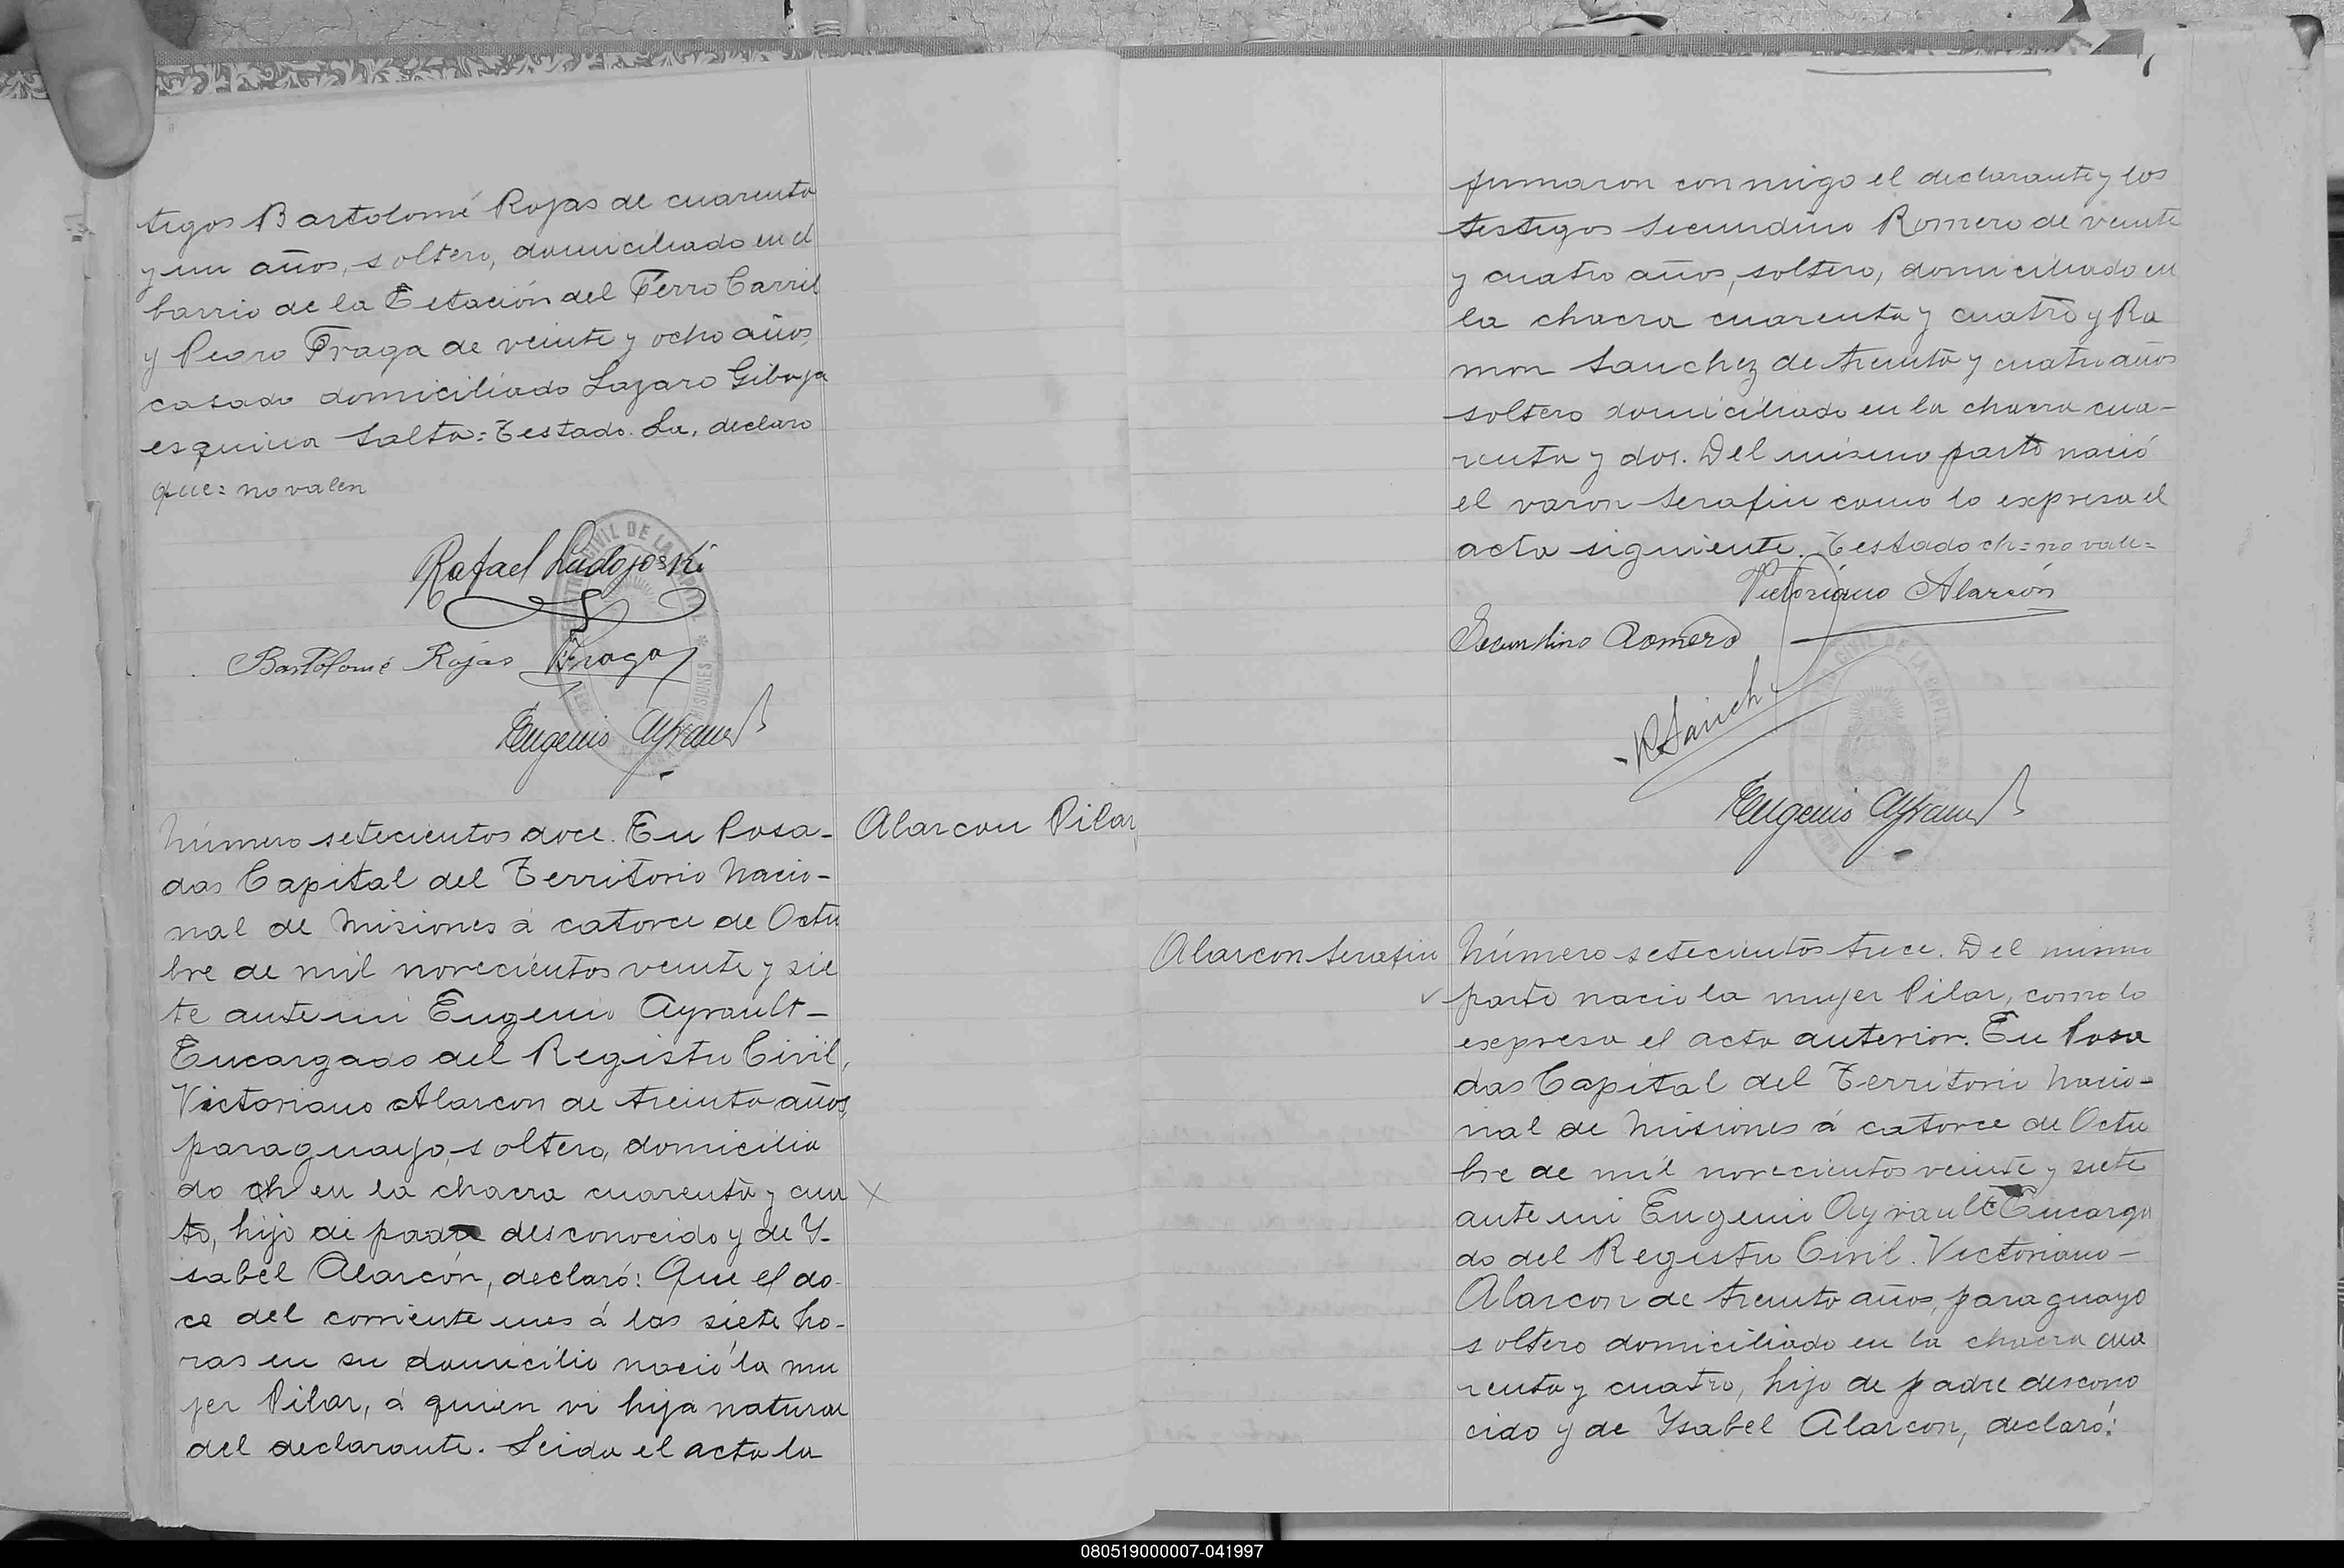 tigos Bartolomé Rojas de cuarenta
y un años, soltero, domiciliado en el
barrio de la Estación del Ferro Carril
y Pedro Fraga de veinte y ocho años,
casado domiciliado Lazaro Gibaja
esquina Salta=Testado. La, declaro
que= no valen
Rafael Ludojoski
Bartolomé Rojas PFraga
Eugenio Ayrault
Alarcon Pilar
Número setecientos doce. En Posa-
das Capital del Territorio Nacio-
nal de Misiones á catorce de Octu
bre de mil novecientos veinte y sie
te ante mi Eugenio Ayrault-
Encargado del Registro Civil,
Victoriano Alarcon de treinta años,
paraguayo, soltero, domicilia
do ch en la chacra cuarenta y cua X
to, hijo de padre desconocido y de Y-
sabel Alarcón, declaró: Que el do-
ce del corriente mes á las siete ho-
ras en su domicilio nació la mu
jer Pilar, á quien vi hija natural
del declarante. Leida el acta la
firmaron conmigo el declarante y los
testigos Secundino Romero de veinte
y cuatro años, soltero, domiciliado en
la chacra cuarenta y cuatro y Ra
mon Sanchez de treinta y cuatro años
soltero domiciliado en la chacra cua-
renta y dos. Del mismo parto nació
el varon Serafin como lo expresa el
acta siguiente. Testado ch=no vale=
Victoriano Alarcón
Secundino Romero
R Sanch
Eugenio Ayrault
Alarcon Serafin
Número setecientos trece. Del mismo
parto nacio la mujer Pilar, como lo
expresa el acta anterior. En Posa
das Capital del Territorio Nacio-
nal de Misiones á catorce de Octu
bre de mil novecientos veinte y siete
ante mi Eugenio Ayrault Encarga
do del Registro Civil. Victoriano-
Alarcon de treinta años, paraguayo
soltero domiciliado en la chacra cua
renta y cuatro, hijo de padre descono
cido y de Ysabel Alarcon, declaró:
080519000007-041997